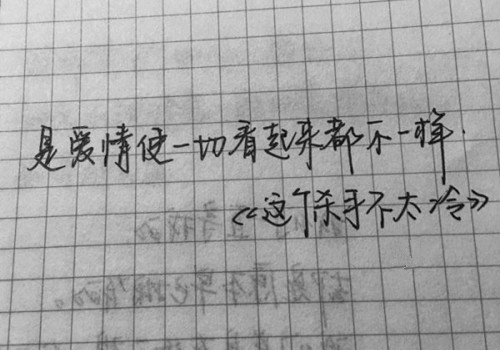 是爱情使一切看起来都不一样.
《这个杀手不太冷》